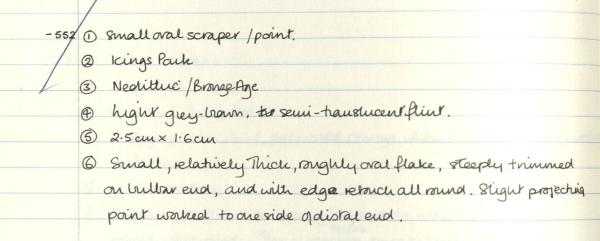 -552 ① Small oval scraper / point.
② Kings Park
③ Neolithic / Bronze Age
④ Light grey-brown, semi-translucent flint.
⑤ 2.5cm x 1.6cm
⑥ Small, relatively thick, roughly oval flake, steeply trimmed
on bulbar end, and with edge retouch all round. Slight projecting
point worked to one side of distal end.